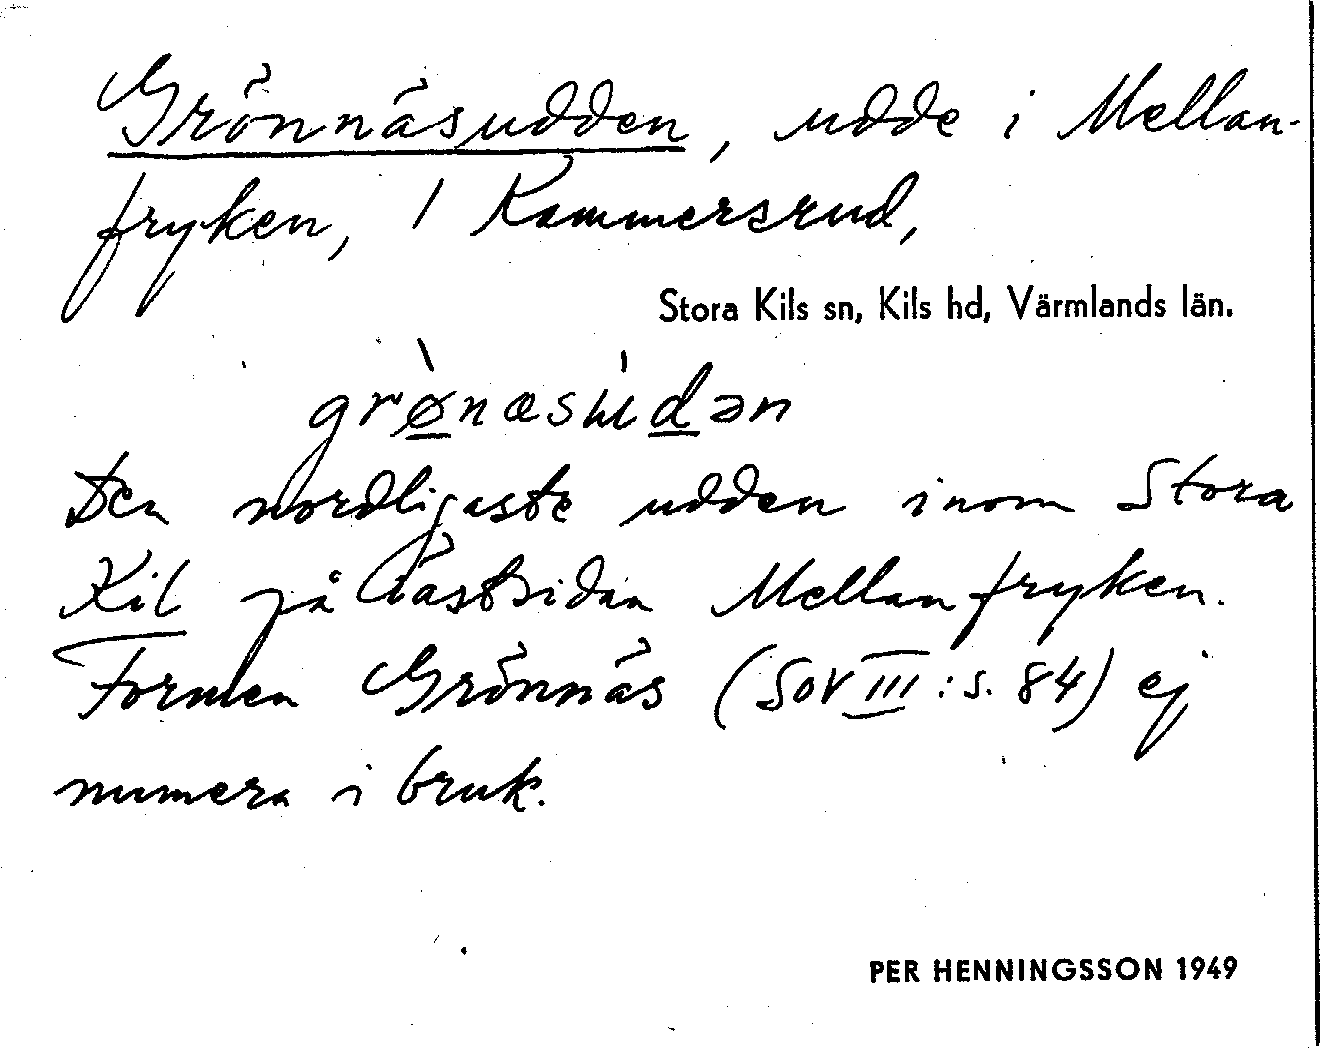 Grönnäsudden, udde i Mellan-
fryken, 1 Kammersrud,
Stora Kils sn, Kils hd, Värmlands län.
grø̀næsu̍dən
Den nordligaste udden inom Stora
Kil på västsidan Mellanfryken.
Formen Grönnäs (SOV III: s. 84) ej
numera i bruk.
PER HENNINGSSON 1949